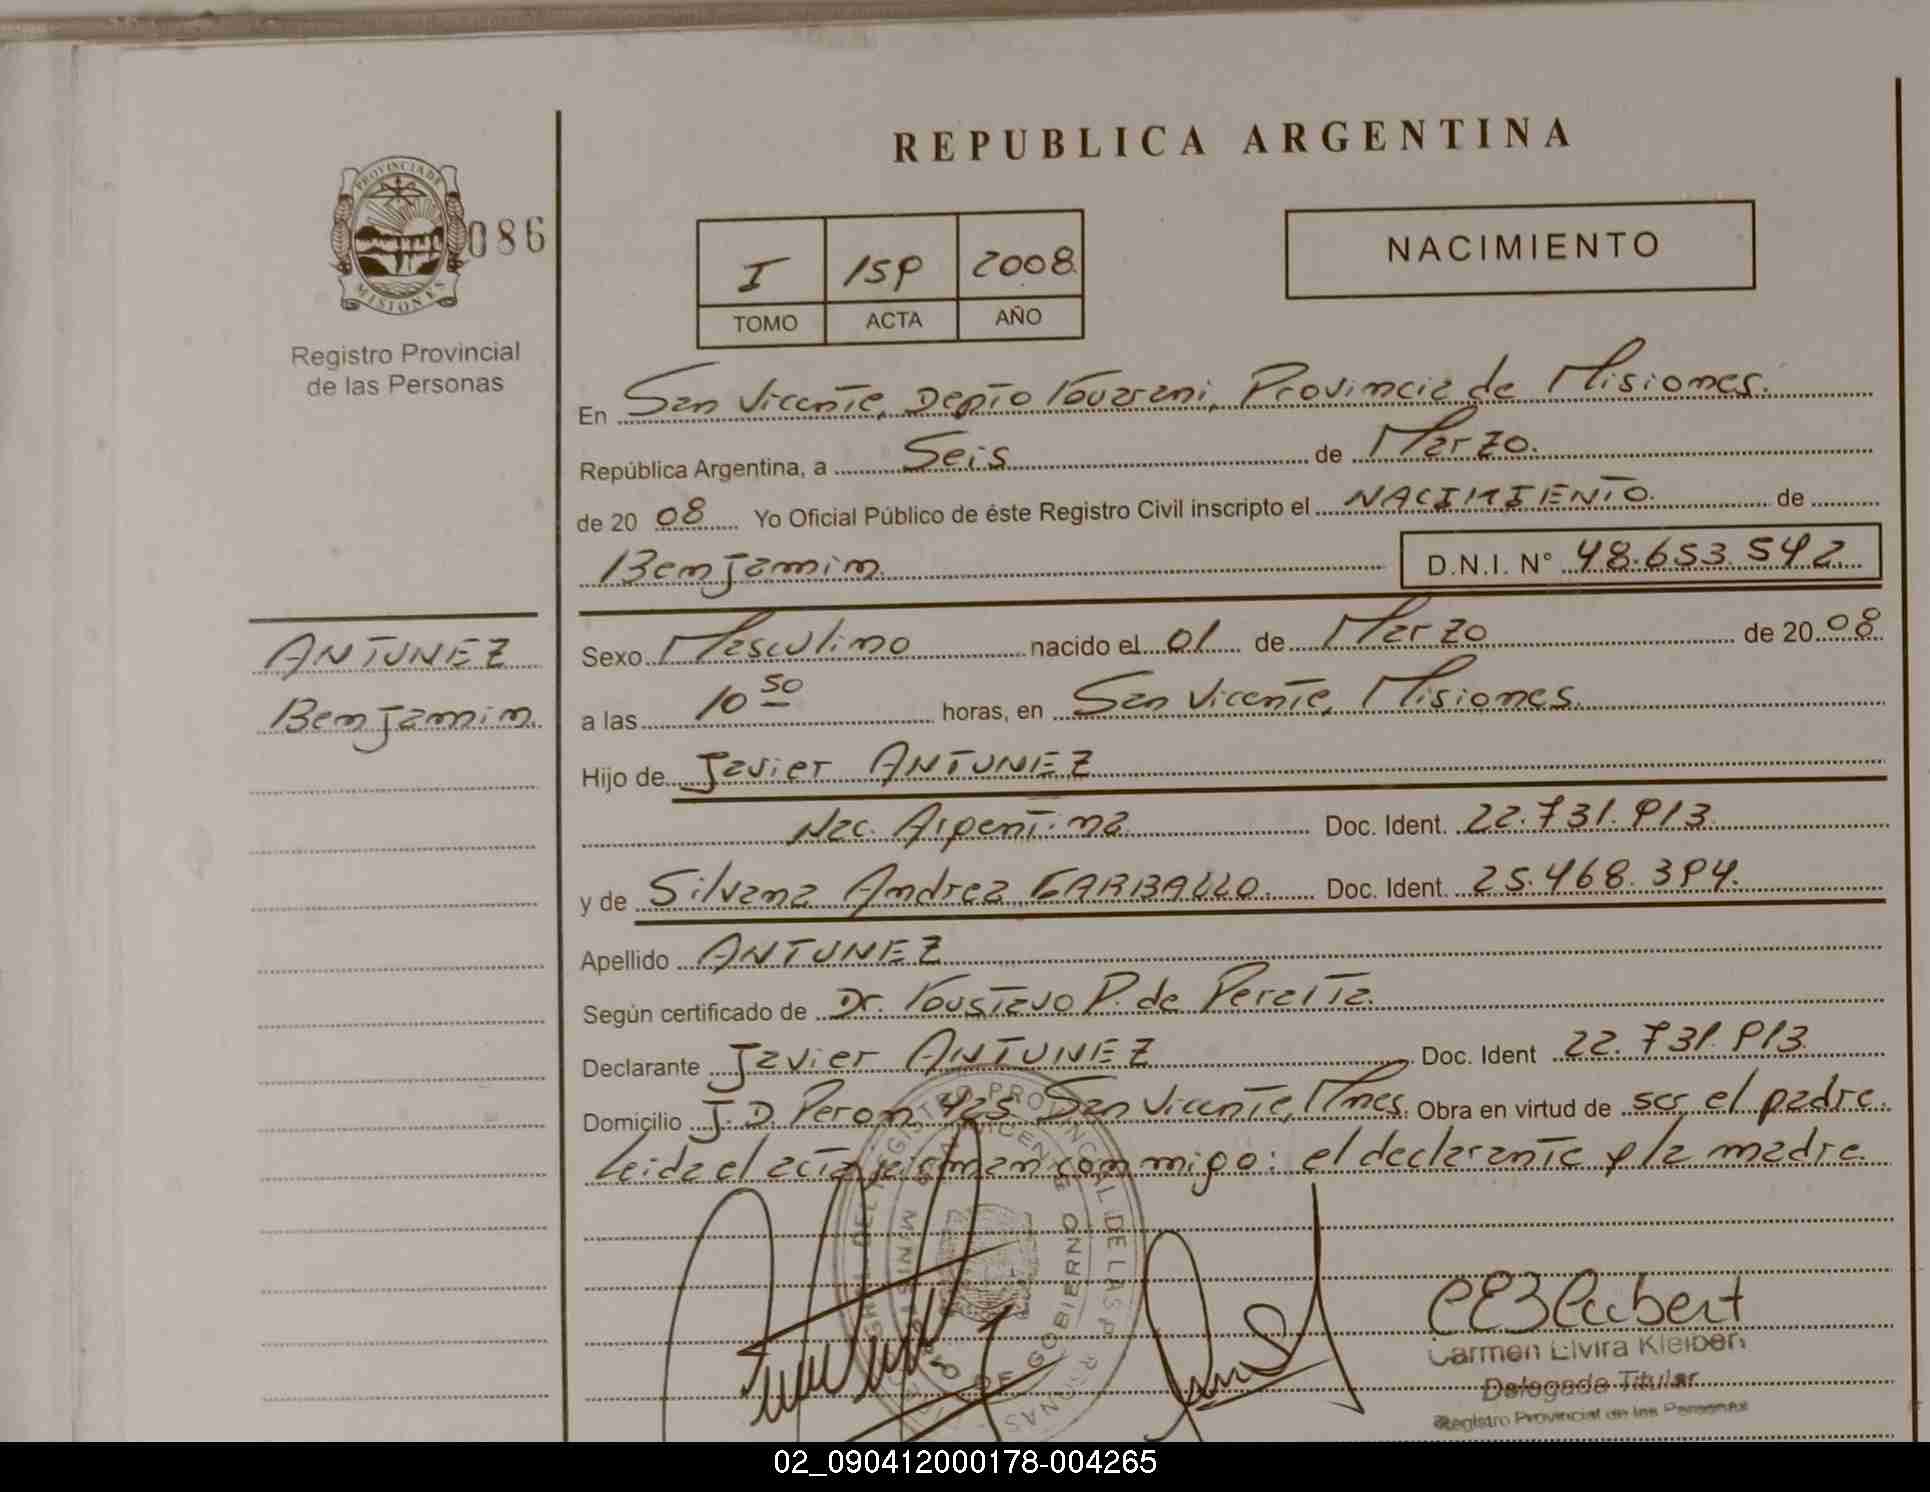 REPUBLICA ARGENTINA
PROVINCIA DE
MISIONES
086
Registro Provincial
de las Personas
I 159 2008
TOMO ACTA AÑO
NACIMIENTO
En San Vicente, Depto Guarani, Provincia de Misiones.
República Argentina, a Seis de Marzo.
de 2008 Yo Oficial Público de éste Registro Civil inscripto el NACIMIENTO. de
Benjamin. D.N.I. N° 48.653.542.
ANTUNEZ
Benjamin.
Sexo Masculino nacido el 01 de Marzo de 2008
a las 10 50 horas, en San Vicente, Misiones.
Hijo de Javier ANTUNEZ
Nac. Argentina Doc. Ident. 22.731.913
y de Silvana Andrea GARBALLO. Doc. Ident. 25.468.394.
Apellido ANTUNEZ
Según certificado de Dr. Gustavo P. de Peralta.
Declarante Javier ANTUNEZ Doc. Ident 22.731.913
Domicilio J.D. Peron 425 San Vicente, Mnes. Obra en virtud de ser el padre.
Leida el acta firman conmigo: el declarante y la madre
Carmen Elvira Kleiben
Delegada Titular
Registro Provincial de las Personas
02_090412000178-004265